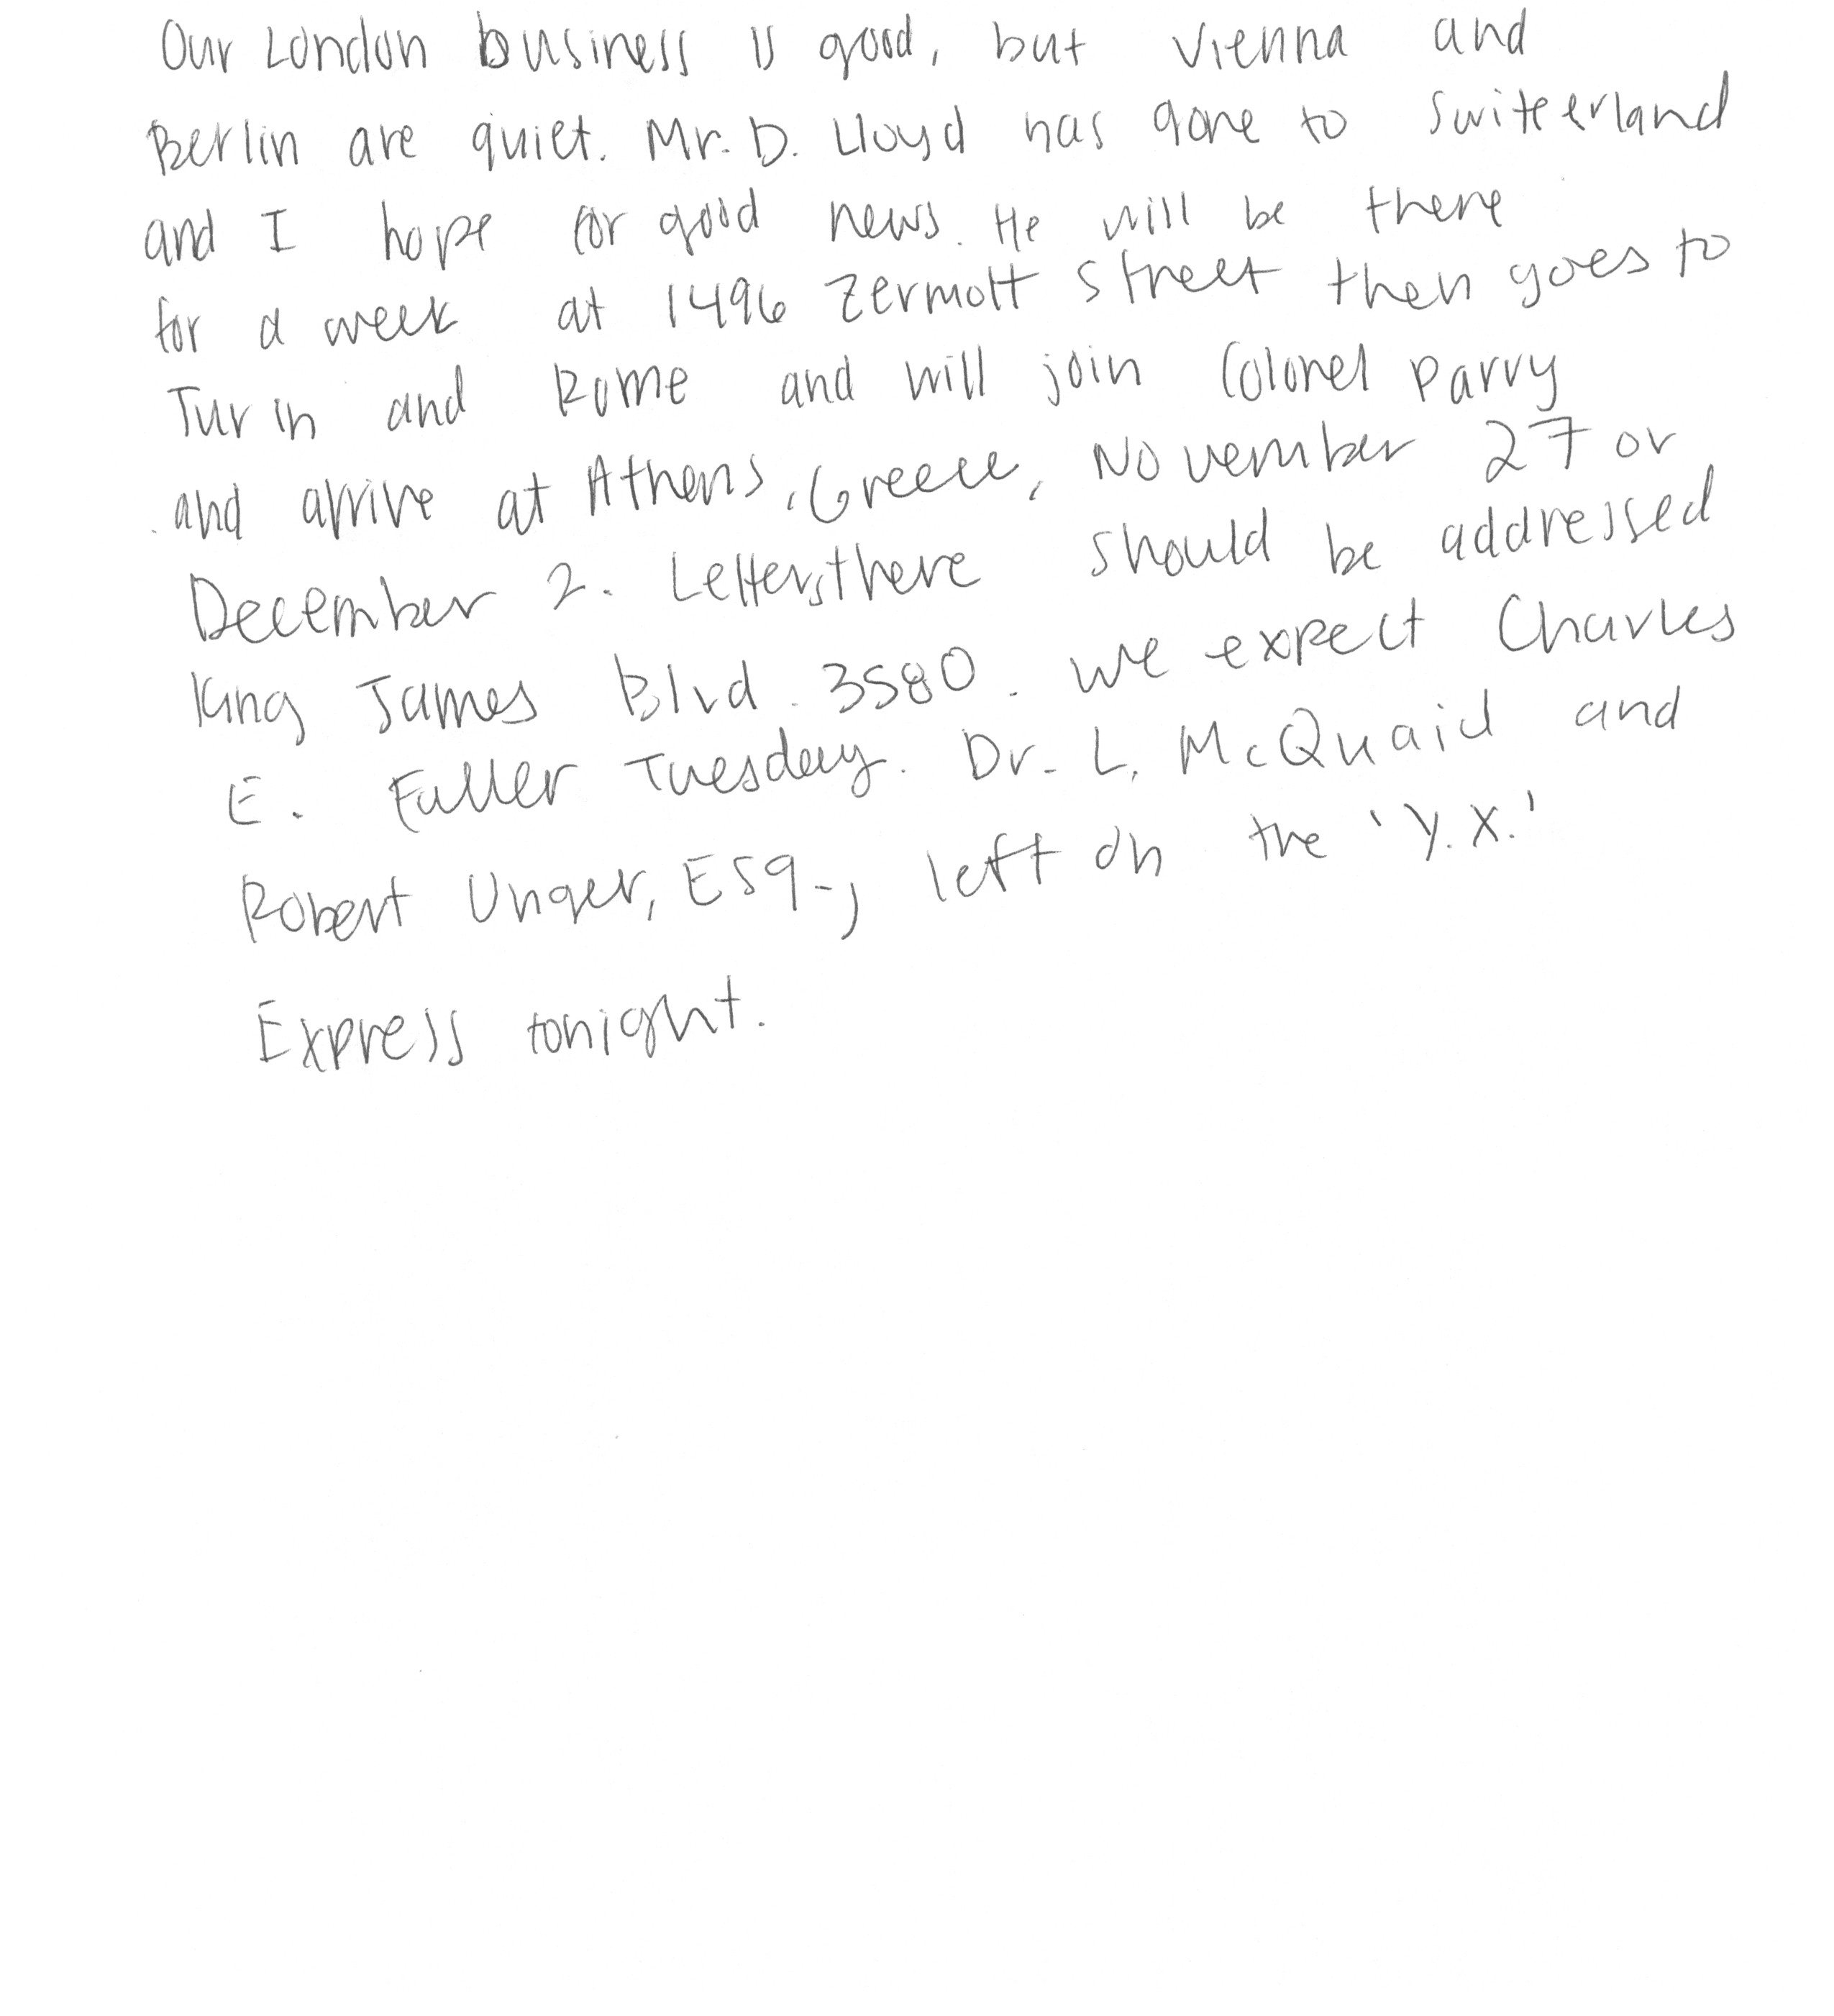 Our London business is good, but Vienna and
Berlin are quiet. Mr. D. Lloyd has gone to Switzerland
and I hope for good news. He will be there
for a week at 1496 Zermott Street then goes to
Turin and Rome and will join Colonel Parry
and arrive at Athens, Greece, November 27 or
December 2. Letters there should be addressed
King James Blvd. 3580. We expect Charles
E. Fuller Tuesday. Dr. L. McQuaid and
Robert Unger, Esq., left on the 'Y.X.'
Express tonight.